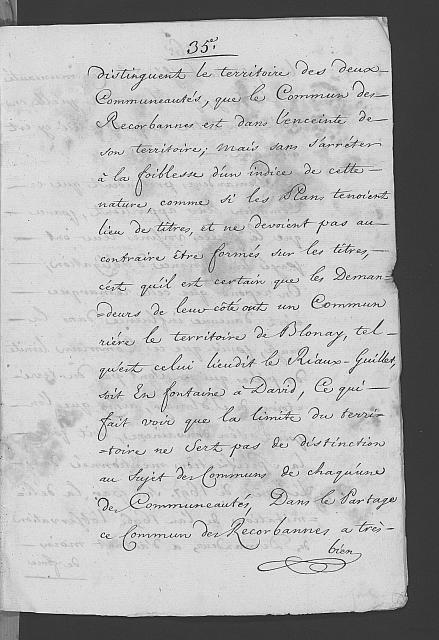 35.e
distinguent le territoire des deux
Communeautés, que le Commun des
Recorbannes est dans l'enceinte de
son territoire; mais sans s'arrêter
à la foiblesse d'un indice de cette
nature, comme si les Plans tenoient
lieu de titres, et ne devoient pas au
contraire être formés sur les titres,
c'est qu'il est certain que les Deman=
=deurs de leur côté ont un Commun
riére le territoire de Blonay, tel
qu'est celui lieudit le Riaux-Guillet,
soit En fontaine à David, Ce qui
fait voir que la limite du terri=
=toire ne sert pas de distinction
au sujet des Communs de chaqu'une
des Communeautés, Dans le Partage
ce Commun des Recorbannes a très-
bien